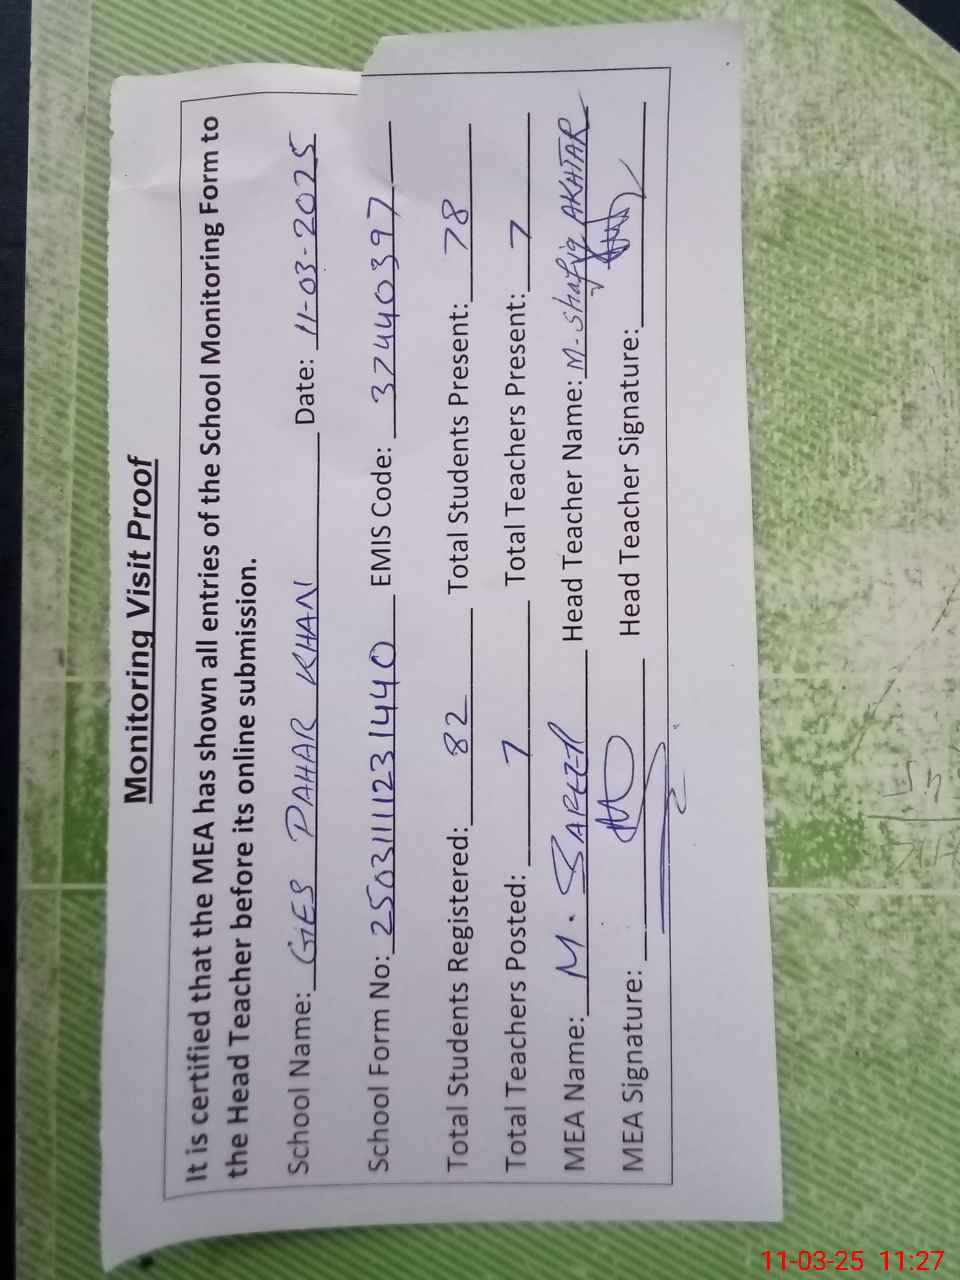 Monitoring Visit Proof
It is certified that the MEA has shown all entries of the School Monitoring Form to
the Head Teacher before its online submission.
School Name: GES PAHAR KHAN Date: 11-03-2025
School Form No: 25031111231440 EMIS Code: 37440397
Total Students Registered: 82 Total Students Present: 78
Total Teachers Posted: 7 Total Teachers Present: 7
MEA Name: M. Head Teacher Name: M. Shafiq AKHTAR
MEA Signature: Head Teacher Signature:
11-03-25 11:27